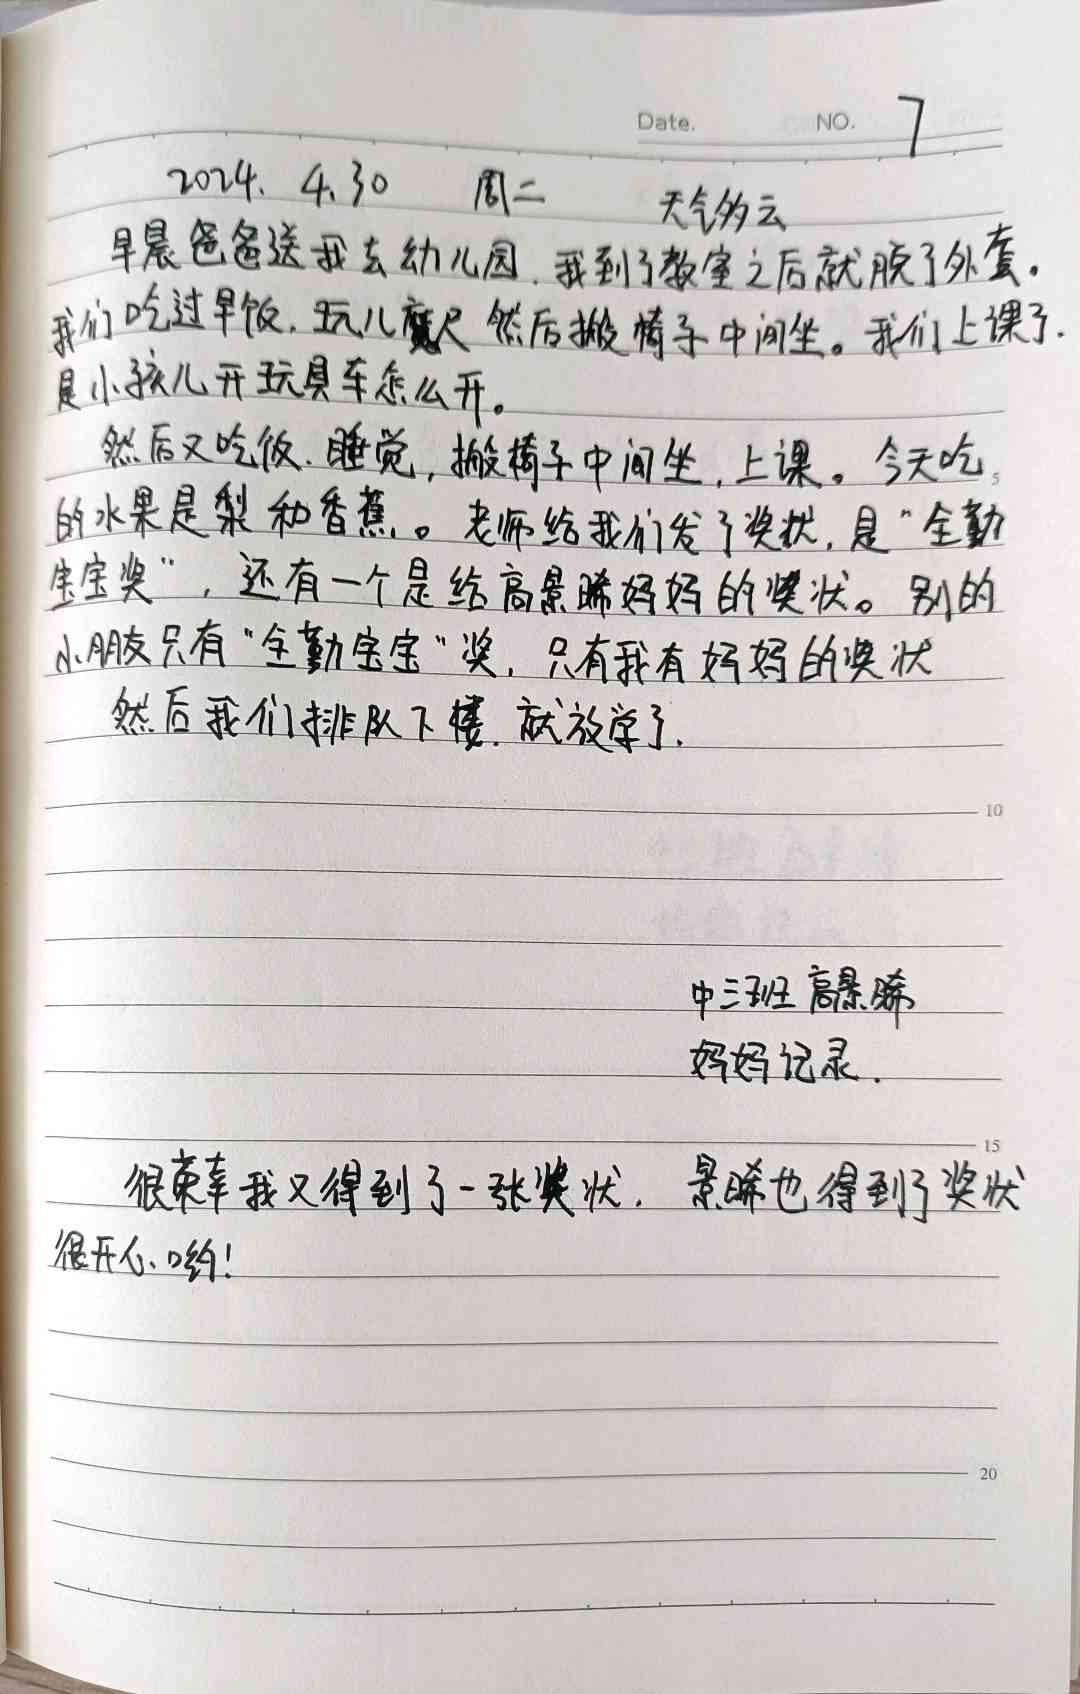 Date. NO. 7
2024. 4.30 周二 天气多云
早晨爸爸送我去幼儿园,我到了教室之后就脱了外套。
我们吃过早饭,玩儿魔尺 然后搬椅子中间坐。我们上课了.
是小孩儿开玩具车怎么开。
然后又吃饭.睡觉,搬椅子中间坐,上课。今天吃
5
的水果是梨和香蕉。老师给我们发了奖状,是“全勤
宝宝奖”,还有一个是给高景晞妈妈的奖状。别的
小朋友只有“全勤宝宝”奖,只有我有妈妈的奖状
然后我们排队下楼.就放学了.
10
中三班 高景晞
妈妈记录.
15
很荣幸我又得到了一张奖状. 景晞也得到了奖状
很开心哟!
20